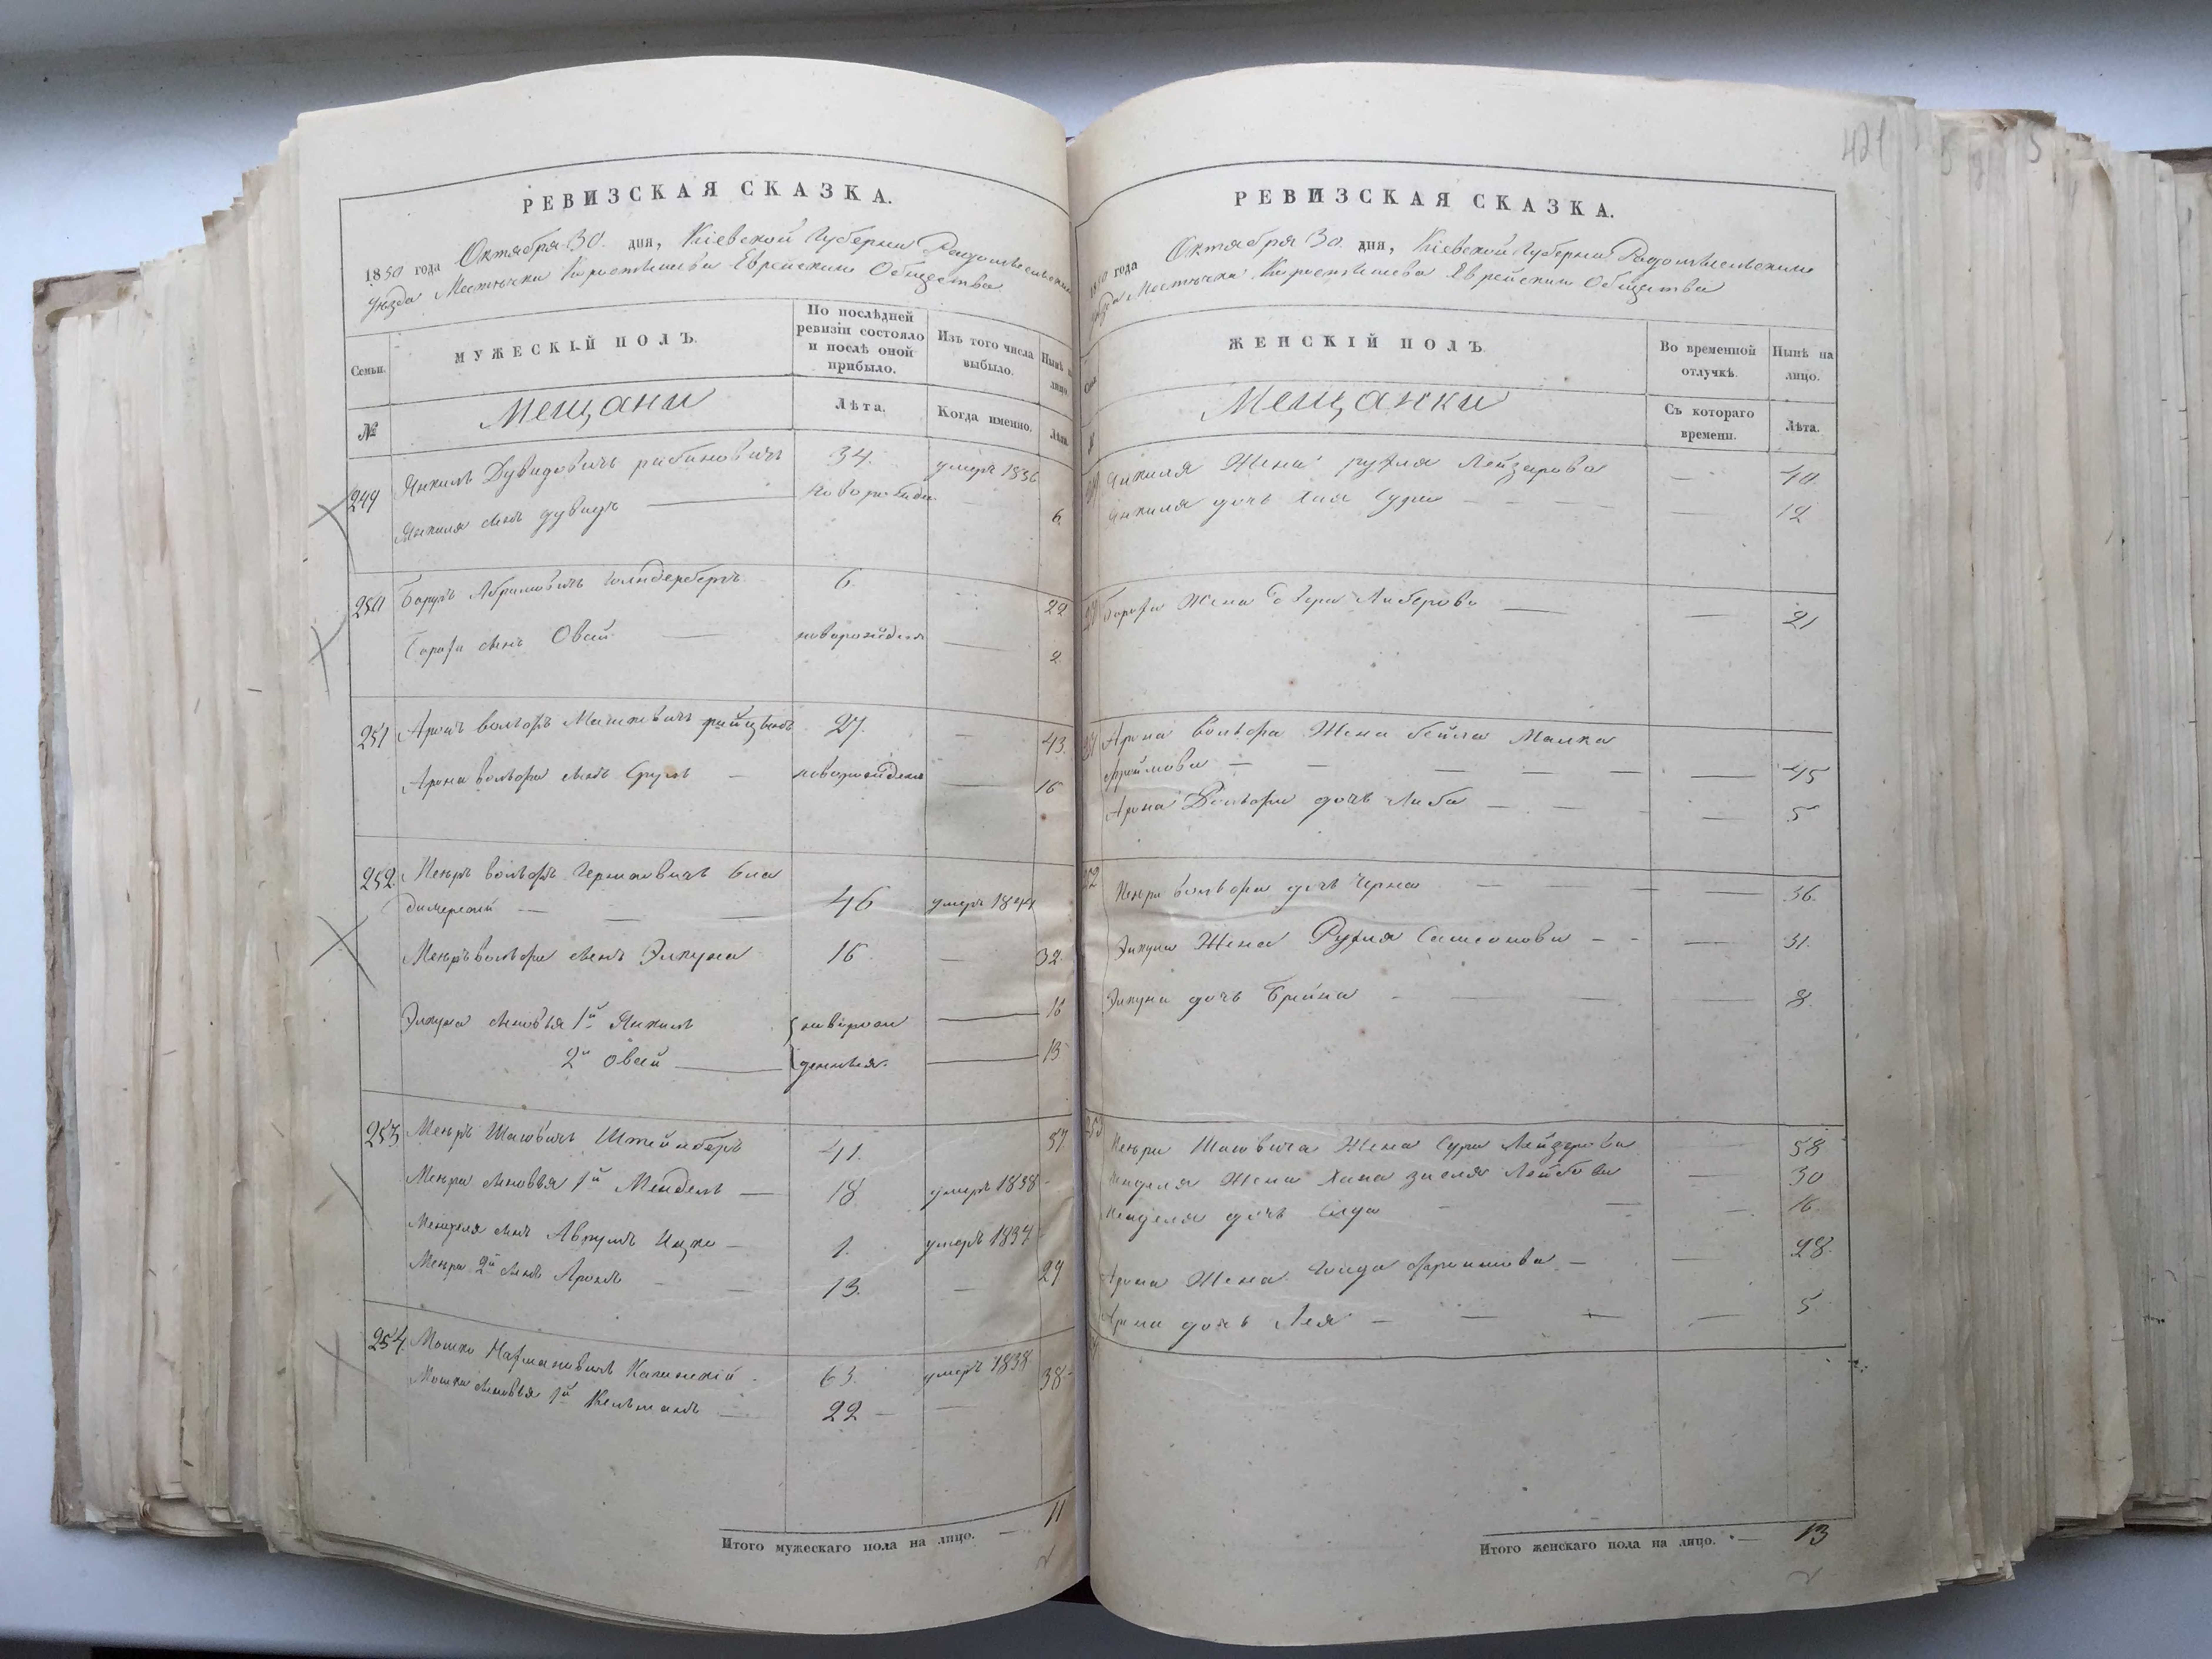 РЕВИЗСКАЯ СКАЗКА.
1850 года Октября 30. дня, Кіевской Губерніи Радомысльскаго
уѣзда Мѣстечка Коростышева Еврейскаго Общества
Семьи.
МУЖЕСКІЙ ПОЛЪ.
По послѣдней ревизіи состояло и послѣ оной прибыло.
Изъ того числа выбыло.
Нынѣ на лицо
№
Мещани
Лѣта.
Когда именно.
Лѣта
249 Янкиль Дувидовичь рабиновичь 34. умеръ 1836
Янкиля сынъ дувидъ новорожден. 6.
250 Борухъ Абрамовичь 6. 22
Боруха сынъ Овсей новорожденъ 2
251 Аронъ вольфъ Машковичъ 27. 43.
Арона вольфа сынъ Сруль новорожденъ 16
252. Меиръ вольфъ Гершковичъ
46 умеръ 1844
Меиръ вольфа сынъ Элкуна 16 32.
Элкуна сыновья 1й Янкиль новорож 16
2й Овсей денныя. 13
253 Меиръ Шаевичъ Штейнберъ 41. 57
Меира сыновья 1й Мендель 18. умеръ 1838
Менделя сынъ Аврумъ Ицко 1. умеръ 1834
Меира 2й сынъ Аронъ 13. 29
254. Мошко Нахмановичъ Капинскій 63. умеръ 1838
Мошка сыновья 1й Кельманъ 22 38
Итого мужескаго пола на лицо. 11
421
РЕВИЗСКАЯ СКАЗКА.
1850 года Октября 30. дня, Кіевской Губерніи Радомысльскаго
уѣзда Мѣстечка Коростышева Еврейскаго Общества
ЖЕНСКІЙ ПОЛЪ.
Во временной отлучкѣ.
Нынѣ на лицо.
Мещанки
Съ котораго времени.
Лѣта.
Янкиля Жена рухля Лейзерова 40.
Янкиля дочь Хая Сура 12
Боруха Жена Лейберова 21
Арона вольфа Жена бейла Малка
Фроимова 45
Арона Вольфа дочь Либа 5
252 Меира вольфа дочь Черна 36.
Элкуна Жена Рухля Самсонова 31.
Элкуна дочь Брайна 8.
253 Меира Шаевича Жена Сура Лейзерова 58
Менделя Жена Хана зисля Лейбова 30
Менделя дочь 16.
Арона Жена Фроимова 28.
Арона дочь Лея 5
Итого женскаго пола на лицо. 13